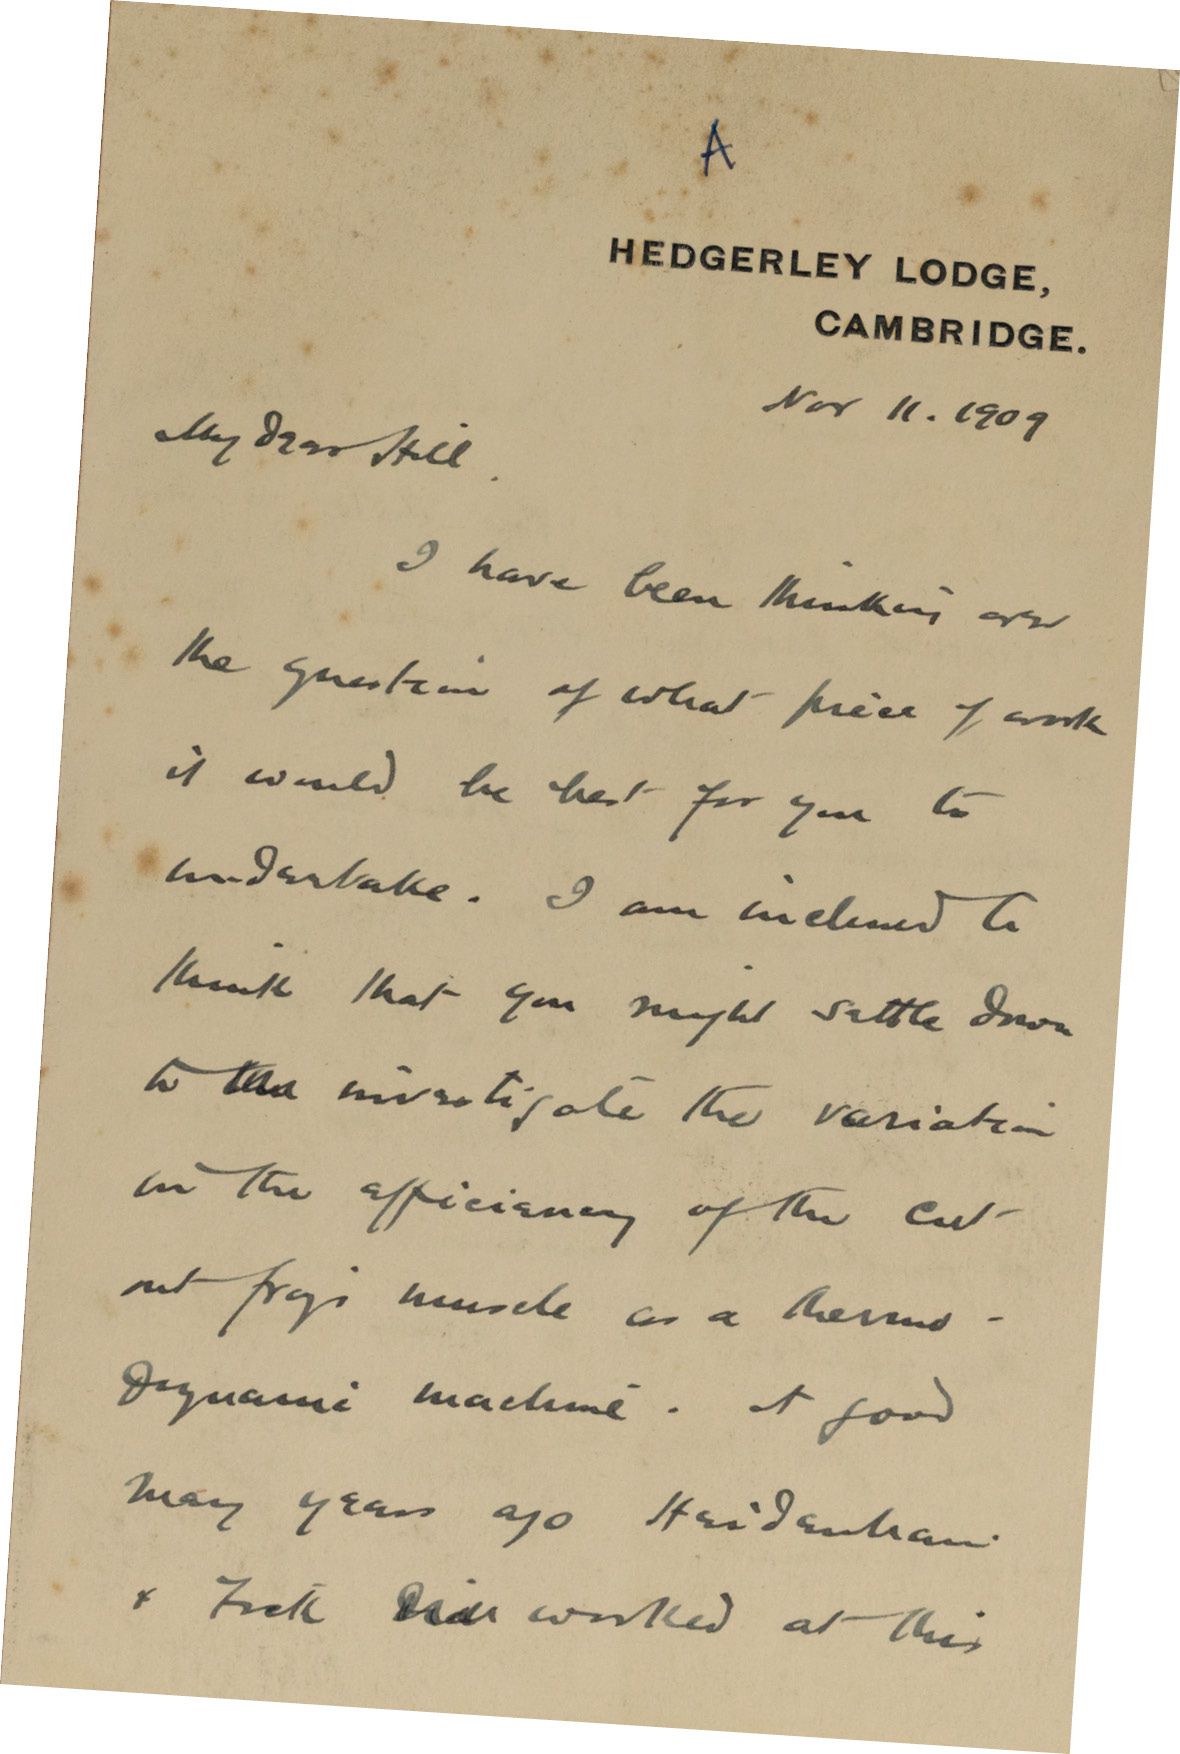 A
HEDGERLEY LODGE,
CAMBRIDGE.
Nov 11. 1909
My dear Hill.
I have been thinking over
the question of what piece of work
it would be best for you to
undertake. I am inclined to
think that you might settle down
to the investigate the variation
in the efficiency of the cut
out frog's muscle as a thermo-
dynamic machine. A good
many years ago Heidenhain
& Fick worked at this